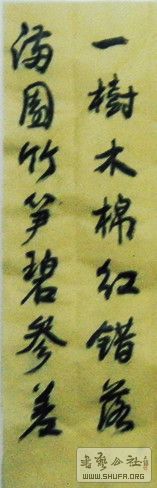 一樹木棉紅錯落
滿園竹笋碧參差
WWW.SHUFA.ORG